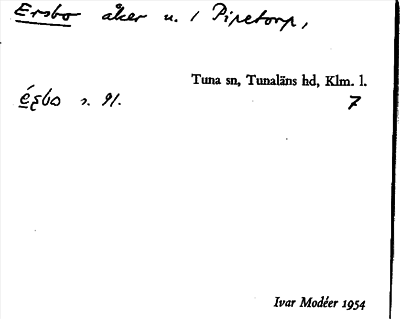 Ersbo åker u. 1 Pipetorp,
Tuna sn, Tunaläns hd, Klm. l.
s. 91. 7
Ivar Modéer 1954